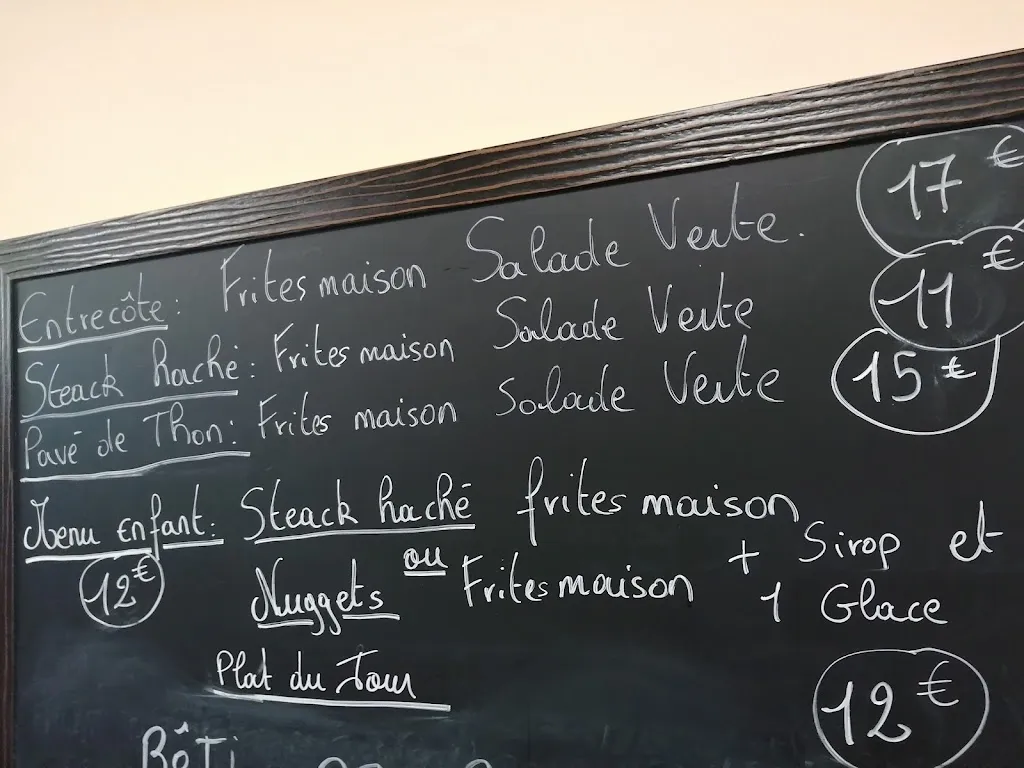 Entrecôte: Frites maison Salade Verte. 17 €
Steack haché: Frites maison Salade Verte 11 €
Pavé de Thon: Frites maison Salade Verte 15 €
Menu enfant: Steack haché frites maison
12 € ou + Sirop et
Nuggets Frites maison 1 Glace
Plat du Jour 12 €